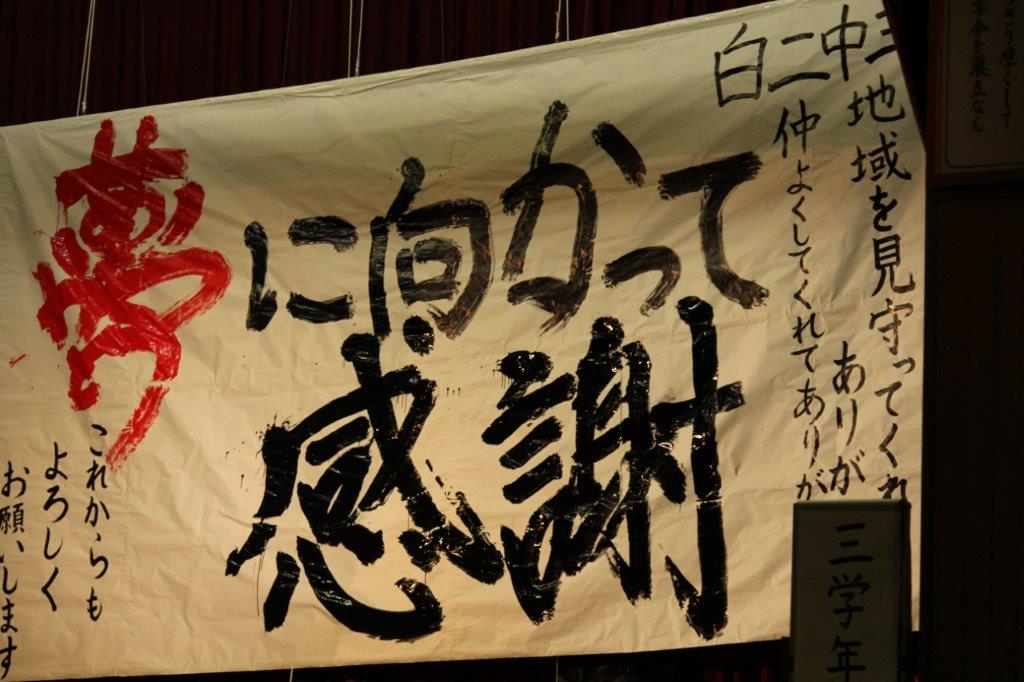 白二中
地域を見守ってくれ
ありが
仲よくしてくれてありが
夢に向かって
感謝
これからも
よろしく
お願いします
三学年